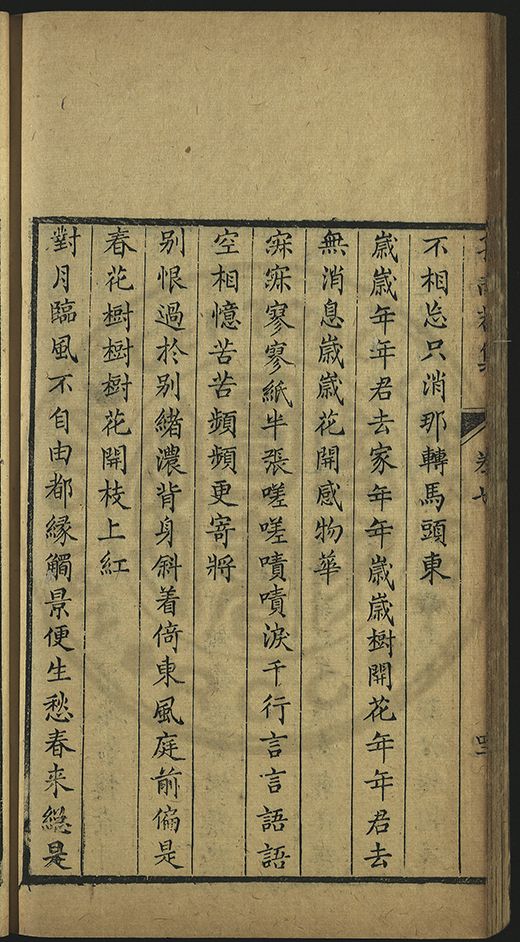 不相忘只消那轉馬頭東
歲歲年年君去家年年歲歲樹開花年年君去
無消息歲歲花開感物華
寂寂寥寥紙半張嗟嗟嘖嘖淚千行言言語語
空相憶苦苦頻頻更寄將
别恨過於别緒濃背身斜着倚東風庭前偏是
春花樹樹樹花開枝上紅
對月臨風不自由都緣觸景便生愁春来緫是
卷七